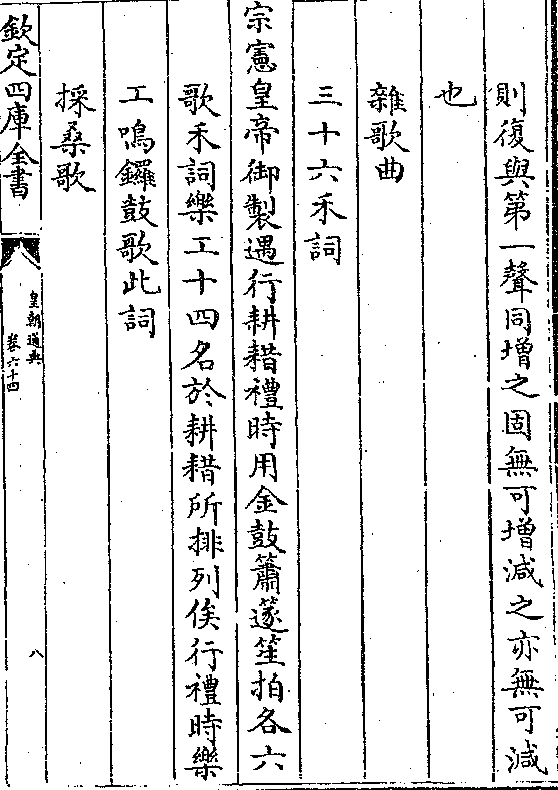 則復與第一聲同増之固無可増減之亦無可減
也
雜歌曲
三十六禾詞
宗憲皇帝御製遇行耕耤禮時用金鼓簫篴笙拍各六
歌禾詞樂工十四名於耕耤所排列俟行禮時樂
工鳴鑼鼓歌此詞
採桑歌
欽定四庫全書
皇朝通典
卷六十四
八